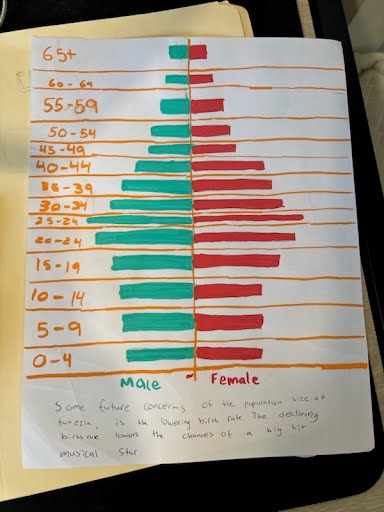 65+
60 - 64
55-59
50-54
45-49
40-44
35-39
30-34
25-29
20-24
15-19
10-14
5-9
0-4
Male Female
Some future concerns of the population size of
tunesia, is the lowering birth rate The declining
birthrate lowers the chances of a big hit
musical star